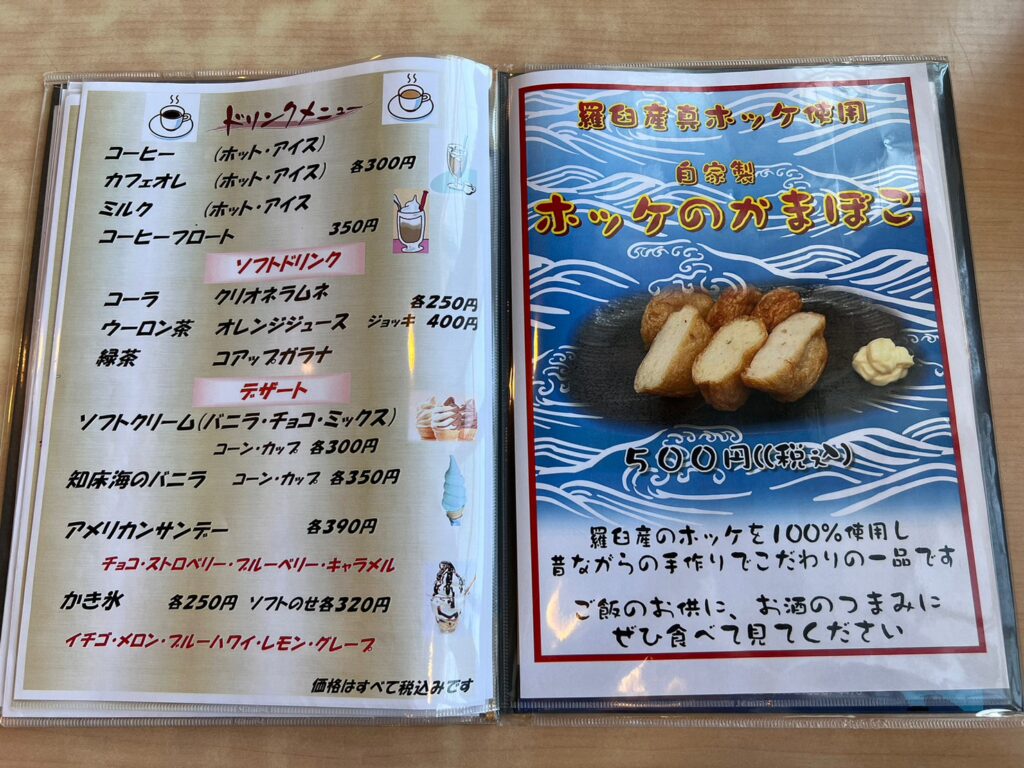 ドリンクメニュー
コーヒー (ホット・アイス)
カフェオレ (ホット・アイス) 各300円
ミルク (ホット・アイス
コーヒーフロート 350円
ソフトドリンク
コーラ クリオネラムネ 各250円
ウーロン茶 オレンジジュース ジョッキ 400円
緑茶 コアップガラナ
デザート
ソフトクリーム(バニラ・チョコ・ミックス)
コーン・カップ 各300円
知床海のバニラ コーン・カップ 各350円
アメリカンサンデー 各390円
チョコ・ストロベリー・ブルーベリー・キャラメル
かき氷 各250円 ソフトのせ各320円
イチゴ・メロン・ブルーハワイ・レモン・グレープ
価格はすべて税込みです
羅臼産真ホッケ使用
自家製
ホッケのかまぼこ
500円((税込)
羅臼産のホッケを100%使用し
昔ながらの手作りでこだわりの一品です
ご飯のお供に、お酒のつまみに
ぜひ食べて見てください